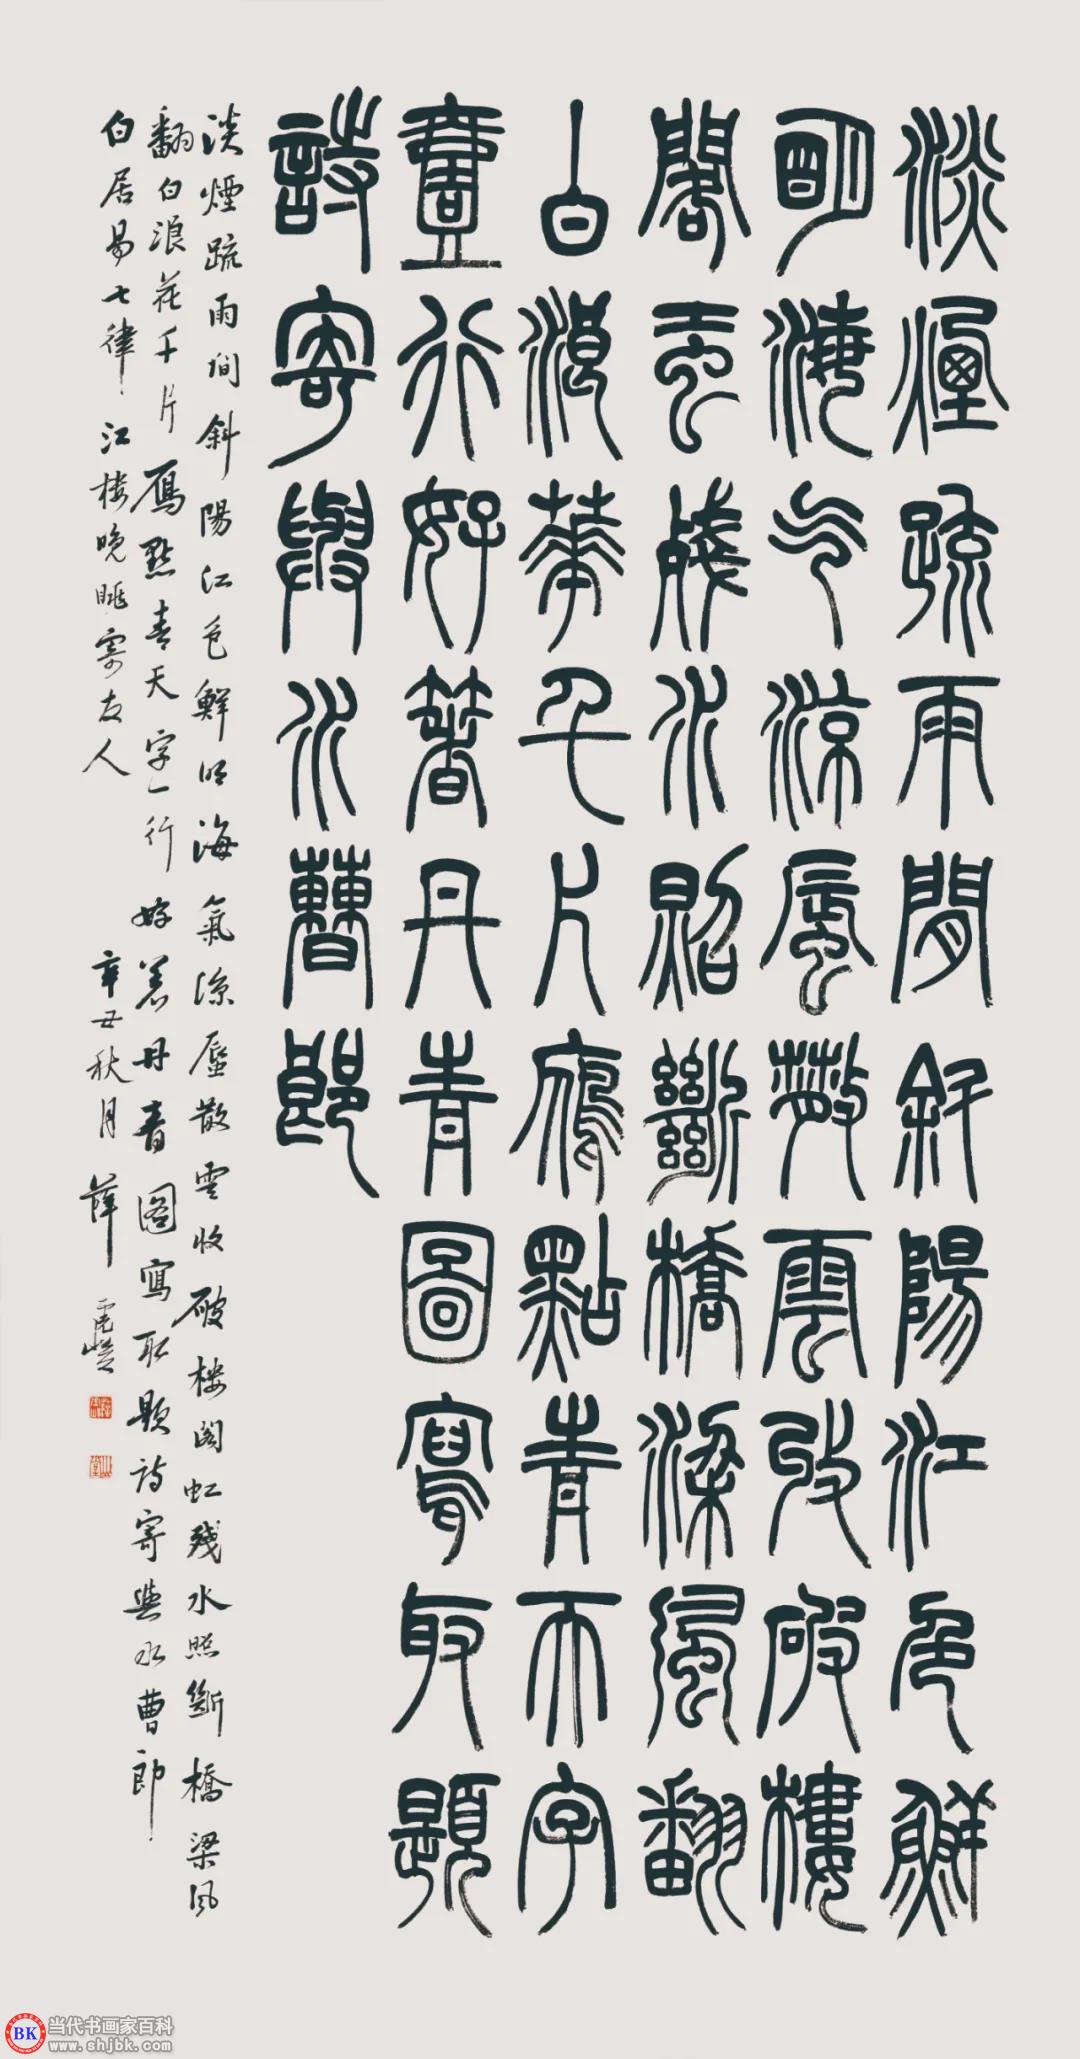 淡煙疏雨間斜陽江色鮮
明海气涼蜃散雲收破樓
閣虹殘水照斷橋梁風翻
白浪華千片鴈點青天字
壹行好著丹青圖寫取題
詩寄與水曹郎
淡煙疏雨間斜陽江色鮮明海氣涼蜃散雲收破楼閣虹殘水照斷橋梁風
翻白浪花千片鴈點青天字一行好著丹青圖寫取題詩寄與水曹郎
白居易七律江楼晚眺寄友人 辛丑秋月薛
BK 当代书画家百科
www.shjbk.com